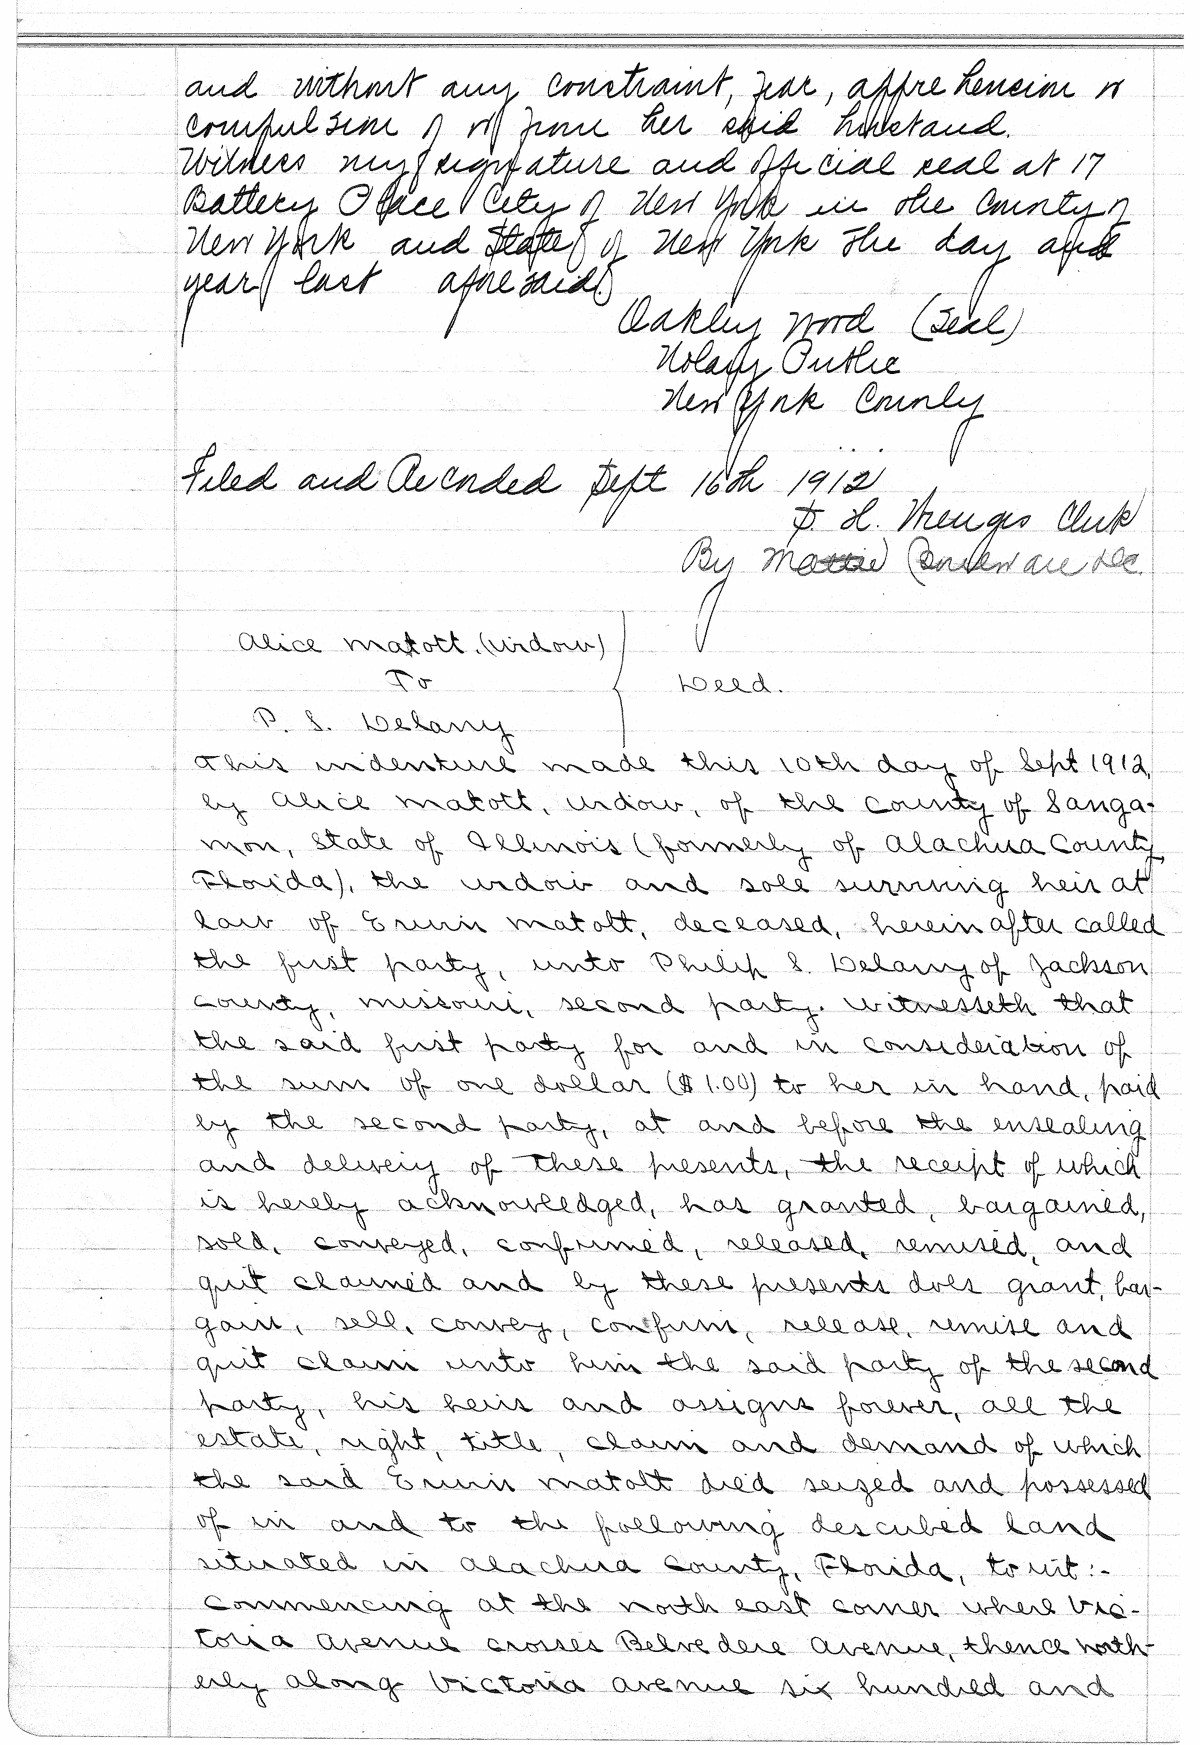 and without any constraint, fear, apprehension or
compulsion of or from her said husband.
Witness my signature and official seal at 17
Battery Place City of New York in the County of
New York and State of New York the day and
year last aforesaid
Oakley Wood (Seal)
Notary Public
New York County
Filed and Recorded Sept 16th 1912
S. H. Wienges Clerk
By Mattie DC.
Alice Matott. (widow)
To
Deed.
P. S. Delany
This indenture made this 10th day of Sept 1912,
by Alice Matott, widow, of the County of Sanga-
mon, State of Illinois (formerly of Alachua County
Florida), the widow and sole surviving heir at
law of Erwin Matott, deceased, herein after called
the first party, unto Philip S. Delany of Jackson
County, Missouri, second party. Witnesseth that
the said first party for and in consideration of
the sum of one dollar ($1.00) to her in hand, paid
by the second party, at and before the ensealing
and delivery of these presents, the receipt of which
is hereby acknowledged, has granted, bargained,
sold, conveyed, confirmed, released, remised, and
quit claimed and by these presents does grant, bar-
gain, sell, convey, confirm, release, remise and
quit claim unto him the said party of the second
party, his heirs and assigns forever, all the
estate, right, title, claim and demand of which
the said Erwin Matott died seized and possessed
of in and to the following described land
situated in Alachua County, Florida, to wit:-
Commencing at the north east corner where Vic-
toria Avenue crosses Belvedere Avenue, thence north-
erly along Victoria Avenue six hundred and